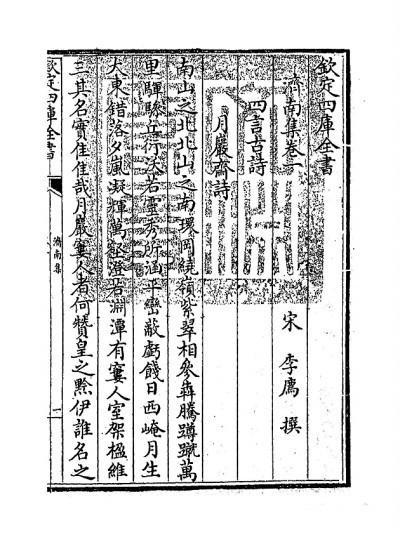 欽定四庫全書
濟南集卷一
宋 李廌 撰
四言古詩
月巖齋詩
南山之北北山之南環岡繞嶺紫翠相參犇騰蹲蹴萬
里驛聯岳行沒右靈秀所涵平巒蔽虧餞日西崦月生
大東錯落夕嵐凝輝萬壑澄若淵潭有窶人室架楹維
三其名實佳佳哉月巖窶人者何贊皇之黥伊誰名之
欽定四庫全書
濟南集
一